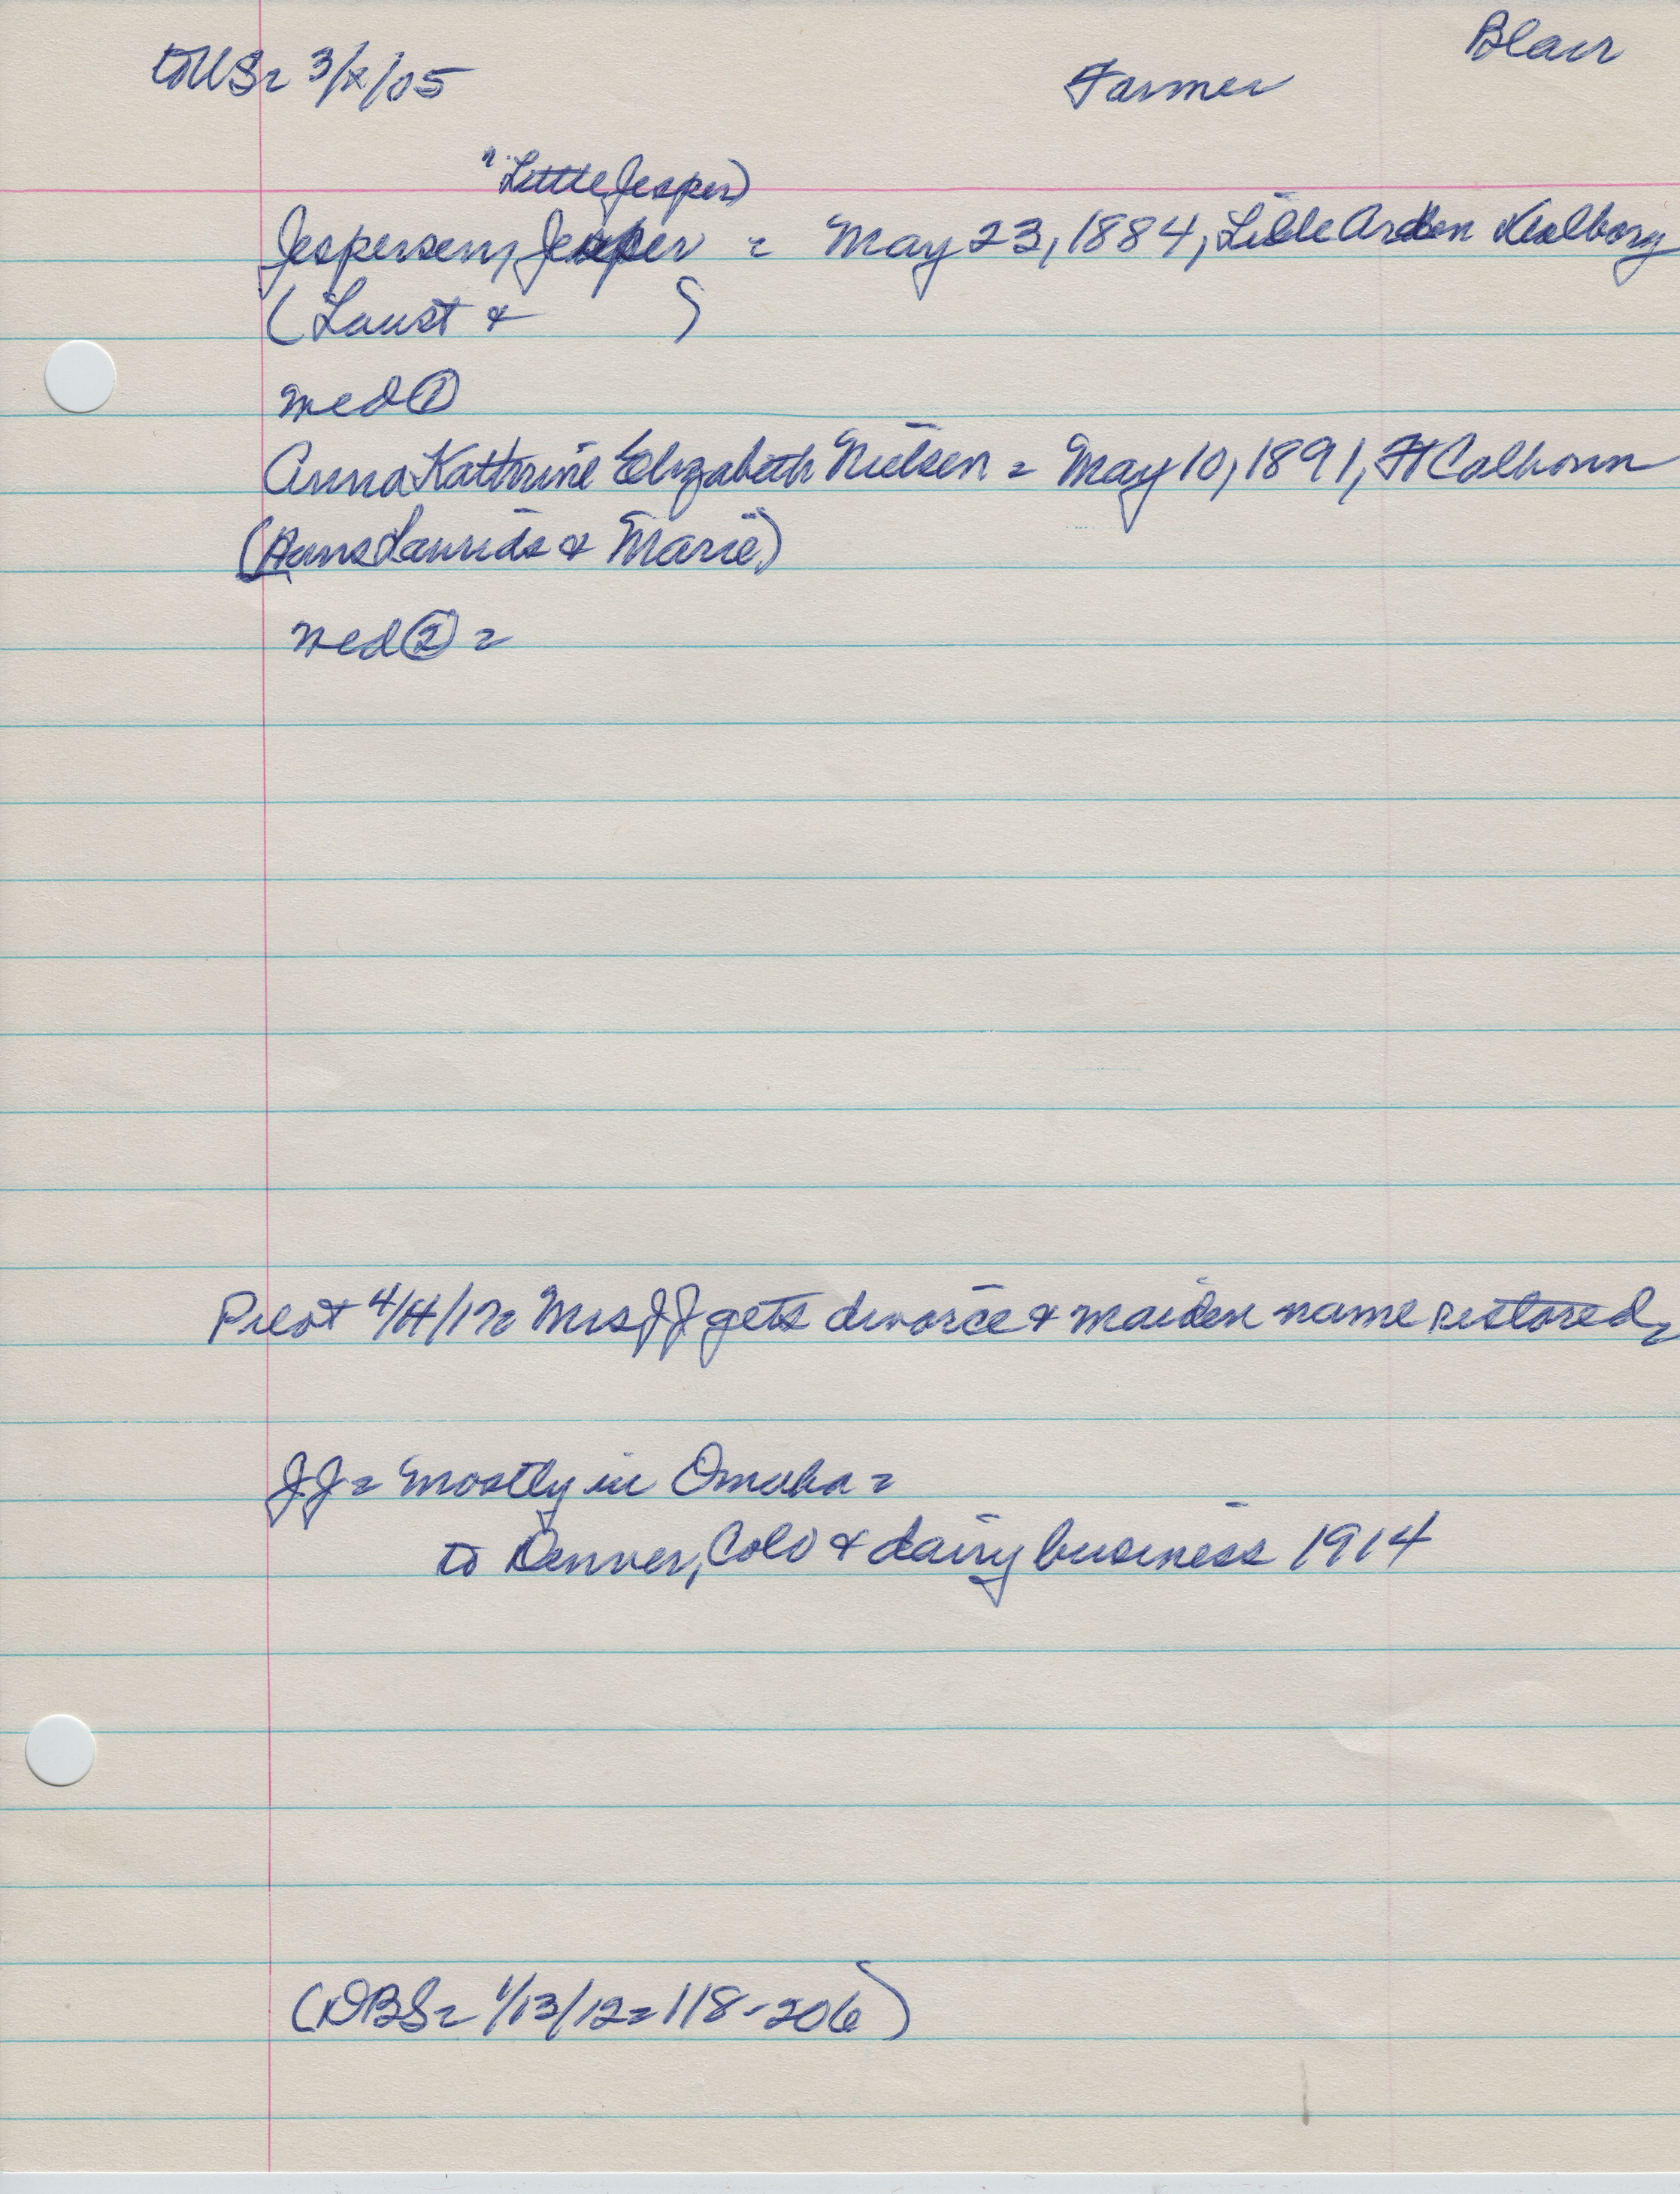 Blair
to US = 3/x/05 Farmer
"Little Jesper)
Jespersen, Jesper = May 23, 1884, Lille Arden Aalborg
(Laust & )
wed ①
Anna Kathrine Elizabeth Nielsen = May 10, 1891, Ft Calhoun
(Hans Laurids & Marie)
wed ② =
Pilot 4/4/17= Mrs JJ gets divorce & maiden name restored,
JJ = mostly in Omaha =
to Denver, Colo & dairy business 1914
(DBS = 1/13/12 = 118-206)